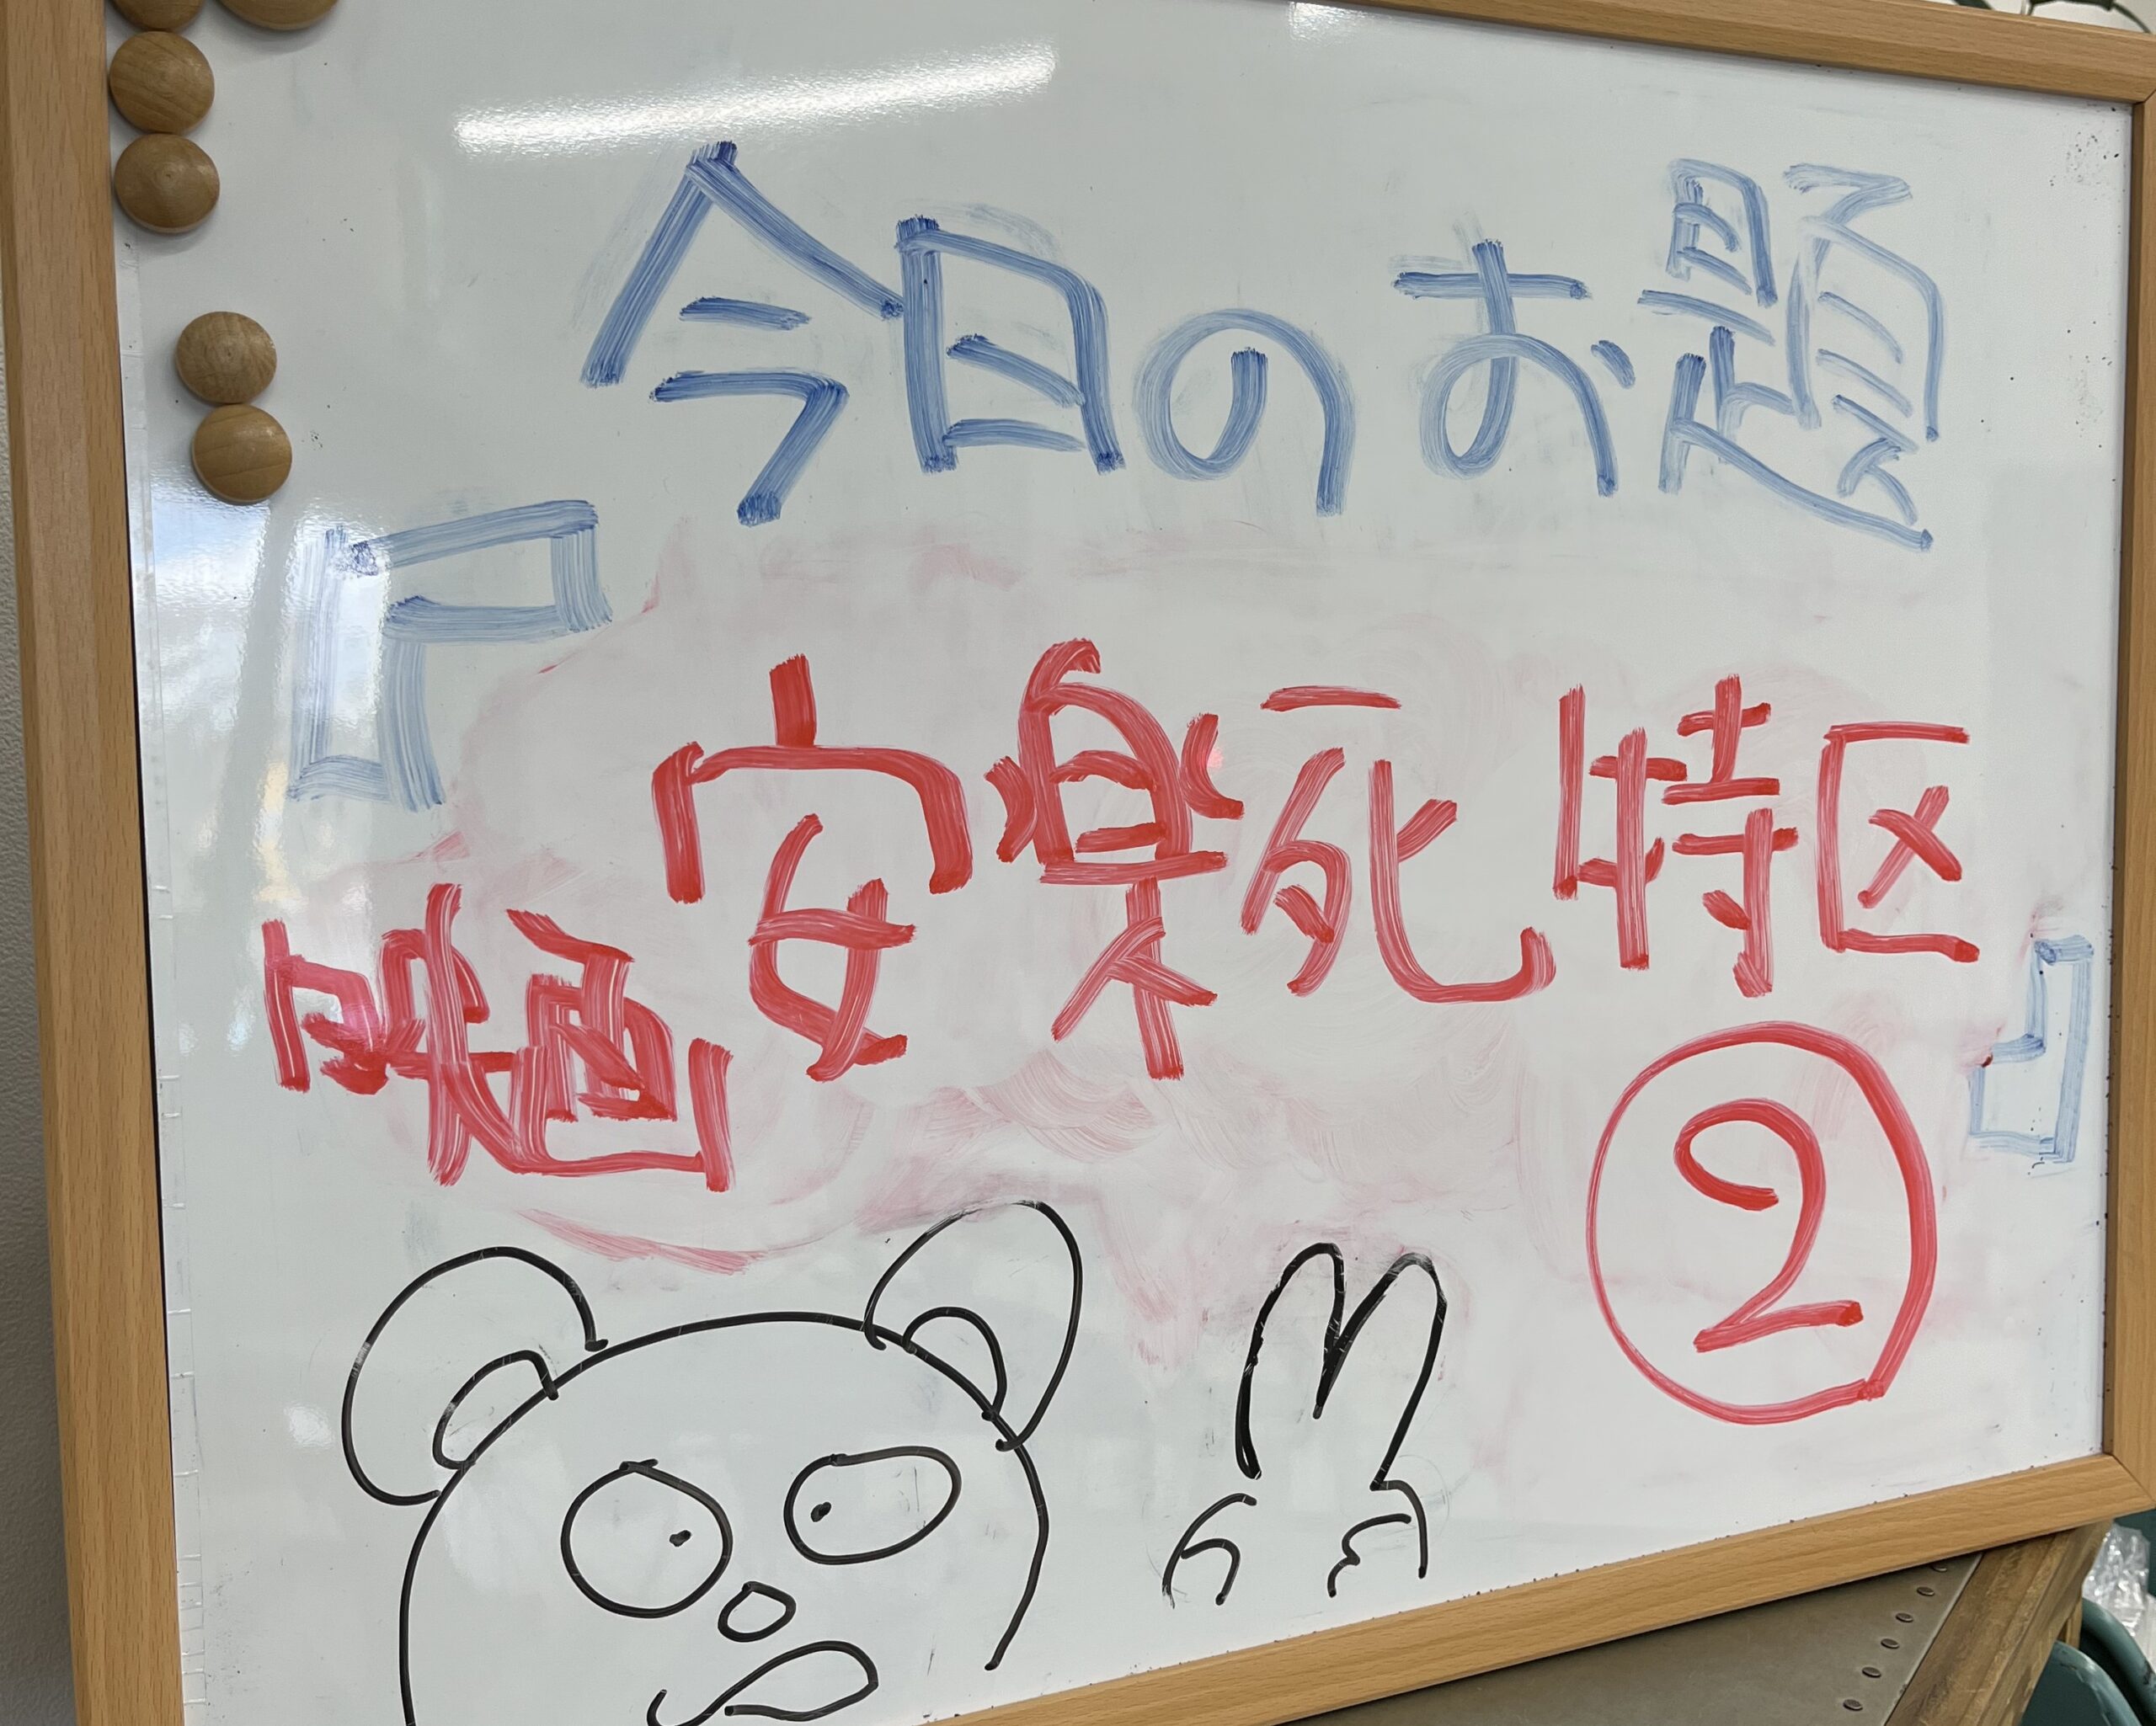 今日のお題
『映画 安楽死特区
②』